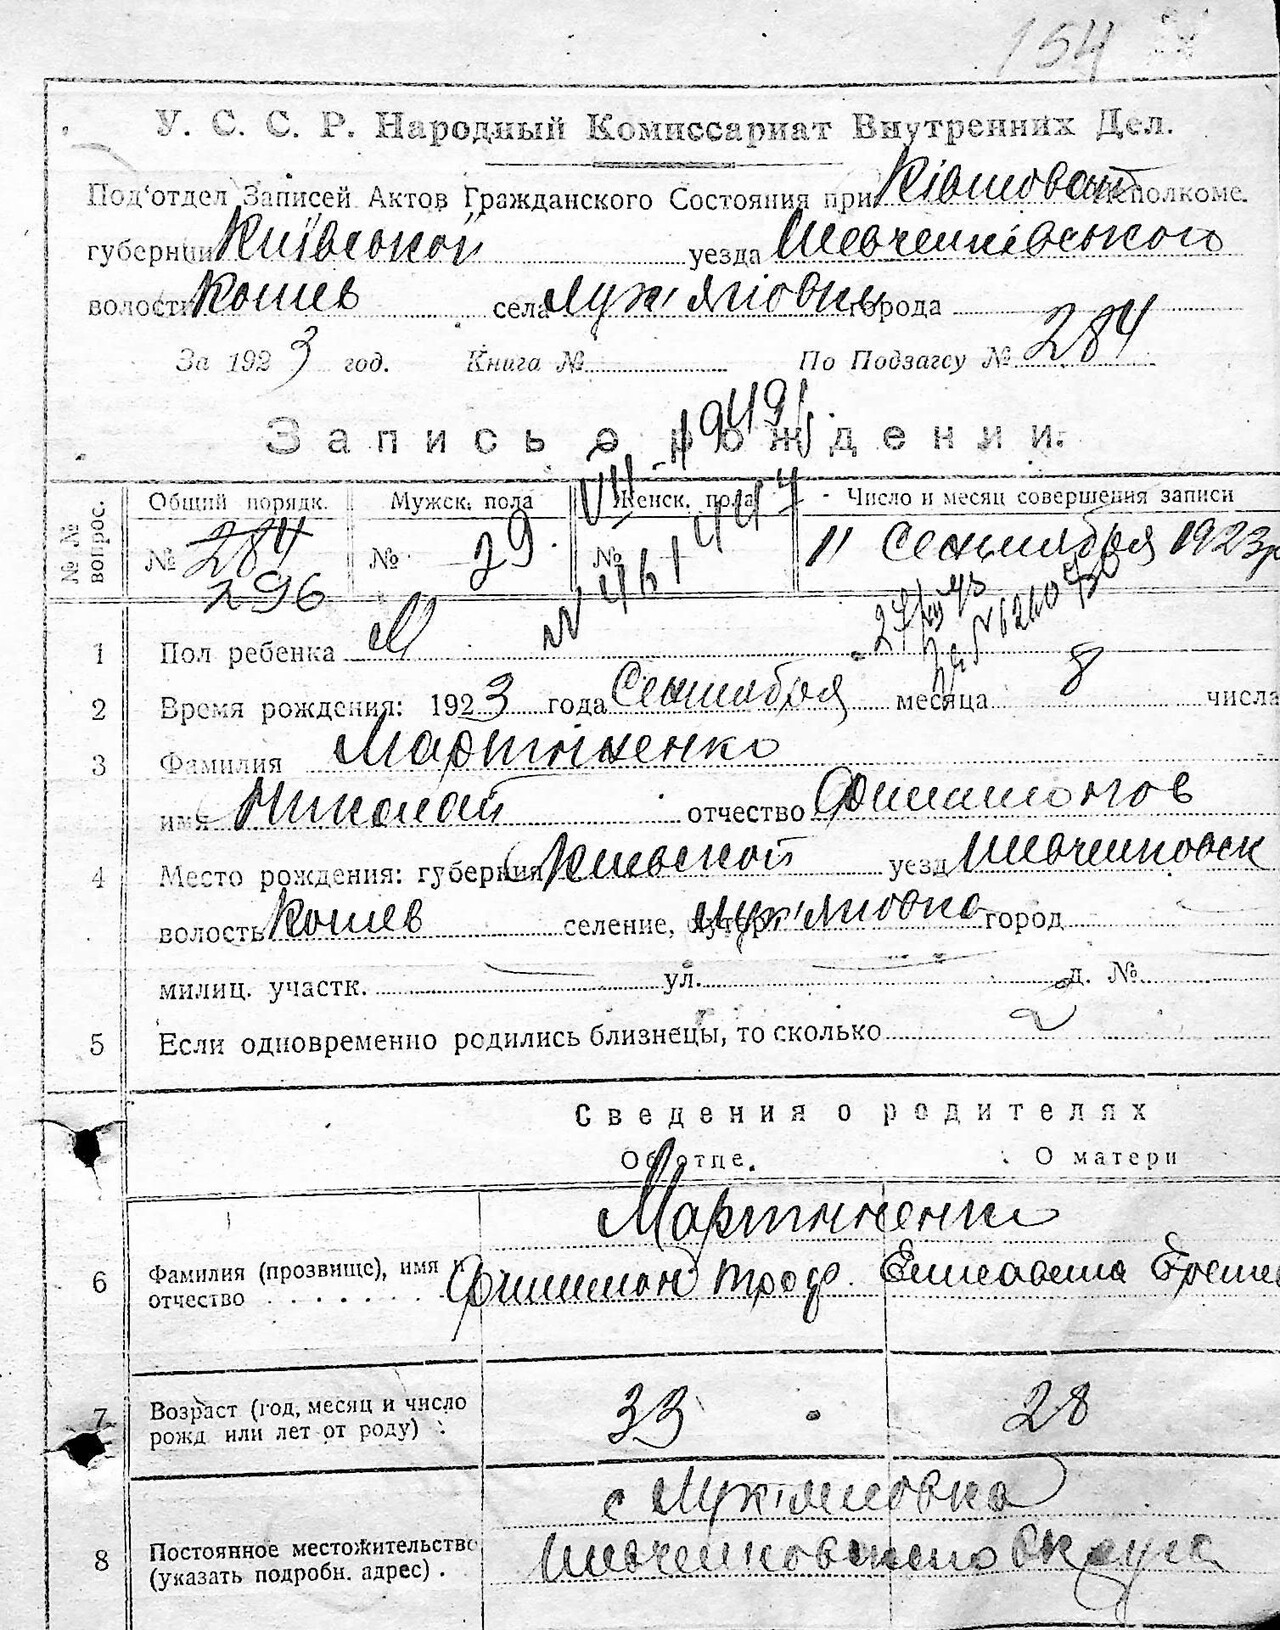 154
У. С. С. Р. Народный Комиссариат Внутренних Дел.
Под‘отдел Записей Актов Гражданского Состояния при Ківшоват Исполкоме.
губернии Київської уезда Шевченківського
волости Кошев села Лук'янівки города
За 1923 год. Книга № По Подзагсу № 284
Запись о рождении.
№№ вопрос.
Общий порядк. Мужск. пола Женск. пола Число и месяц совершения записи
№ 284 № 29 № 11 Сентября 1923
296
1 Пол ребенка М
2 Время рождения: 1923 года Сентября месяца 8 числа
3 Фамилия Мартиненко
имя Николай отчество Филимонов
4 Место рождения: губерния Киевской уезд Шевченковск
волость Кошев селение, хутор Лук'яновка город
милиц. участк. ул. д. №
5 Если одновременно родились близнецы, то сколько
Сведения о родителях
Об отце. О матери
Мартиненко
6 Фамилия (прозвище), имя и
отчество Филимон Троф. Елисавета
7 Возраст (год, месяц и число
рожд или лет от роду) 33 28
с Лук'яновка
8 Постоянное местожительство
(указать подробн. адрес). Шевченковского округа